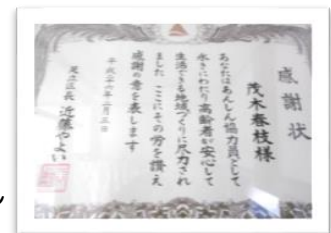 感謝状
茂木春枝様
あなたはあんしん協力員として
永きにわたり高齢者が安心して
生活できる地域づくりに尽力され
ました ここにその労を讃え
感謝の意を表します
平成二十六年二月五日
足立区長 近藤やよい